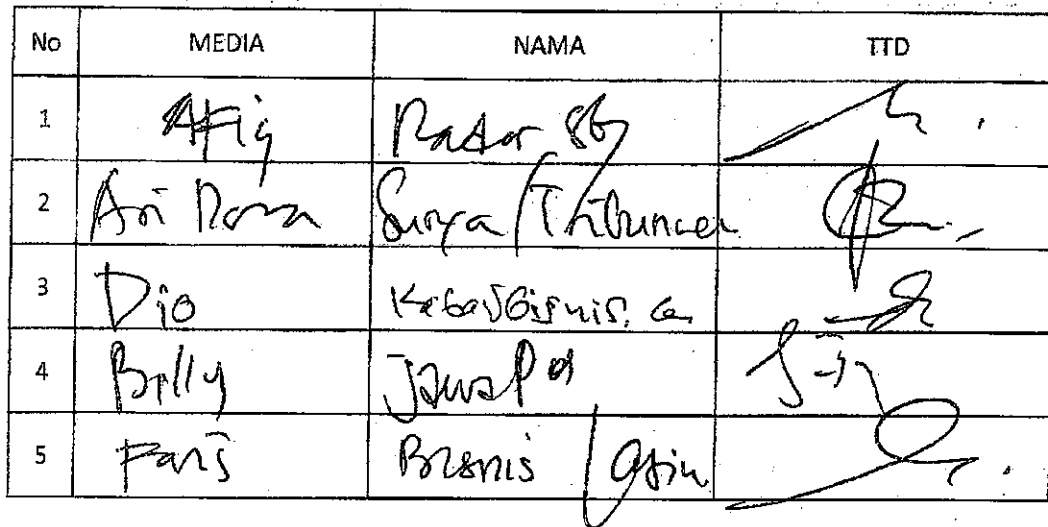 No MEDIA NAMA TTD
1 Afiq Radar Sby
2 Ari Surya/Tribunnews
3 Dio Kabarbisnis.com
4 Billy Jawa Pos
5 Faris Bisnis /